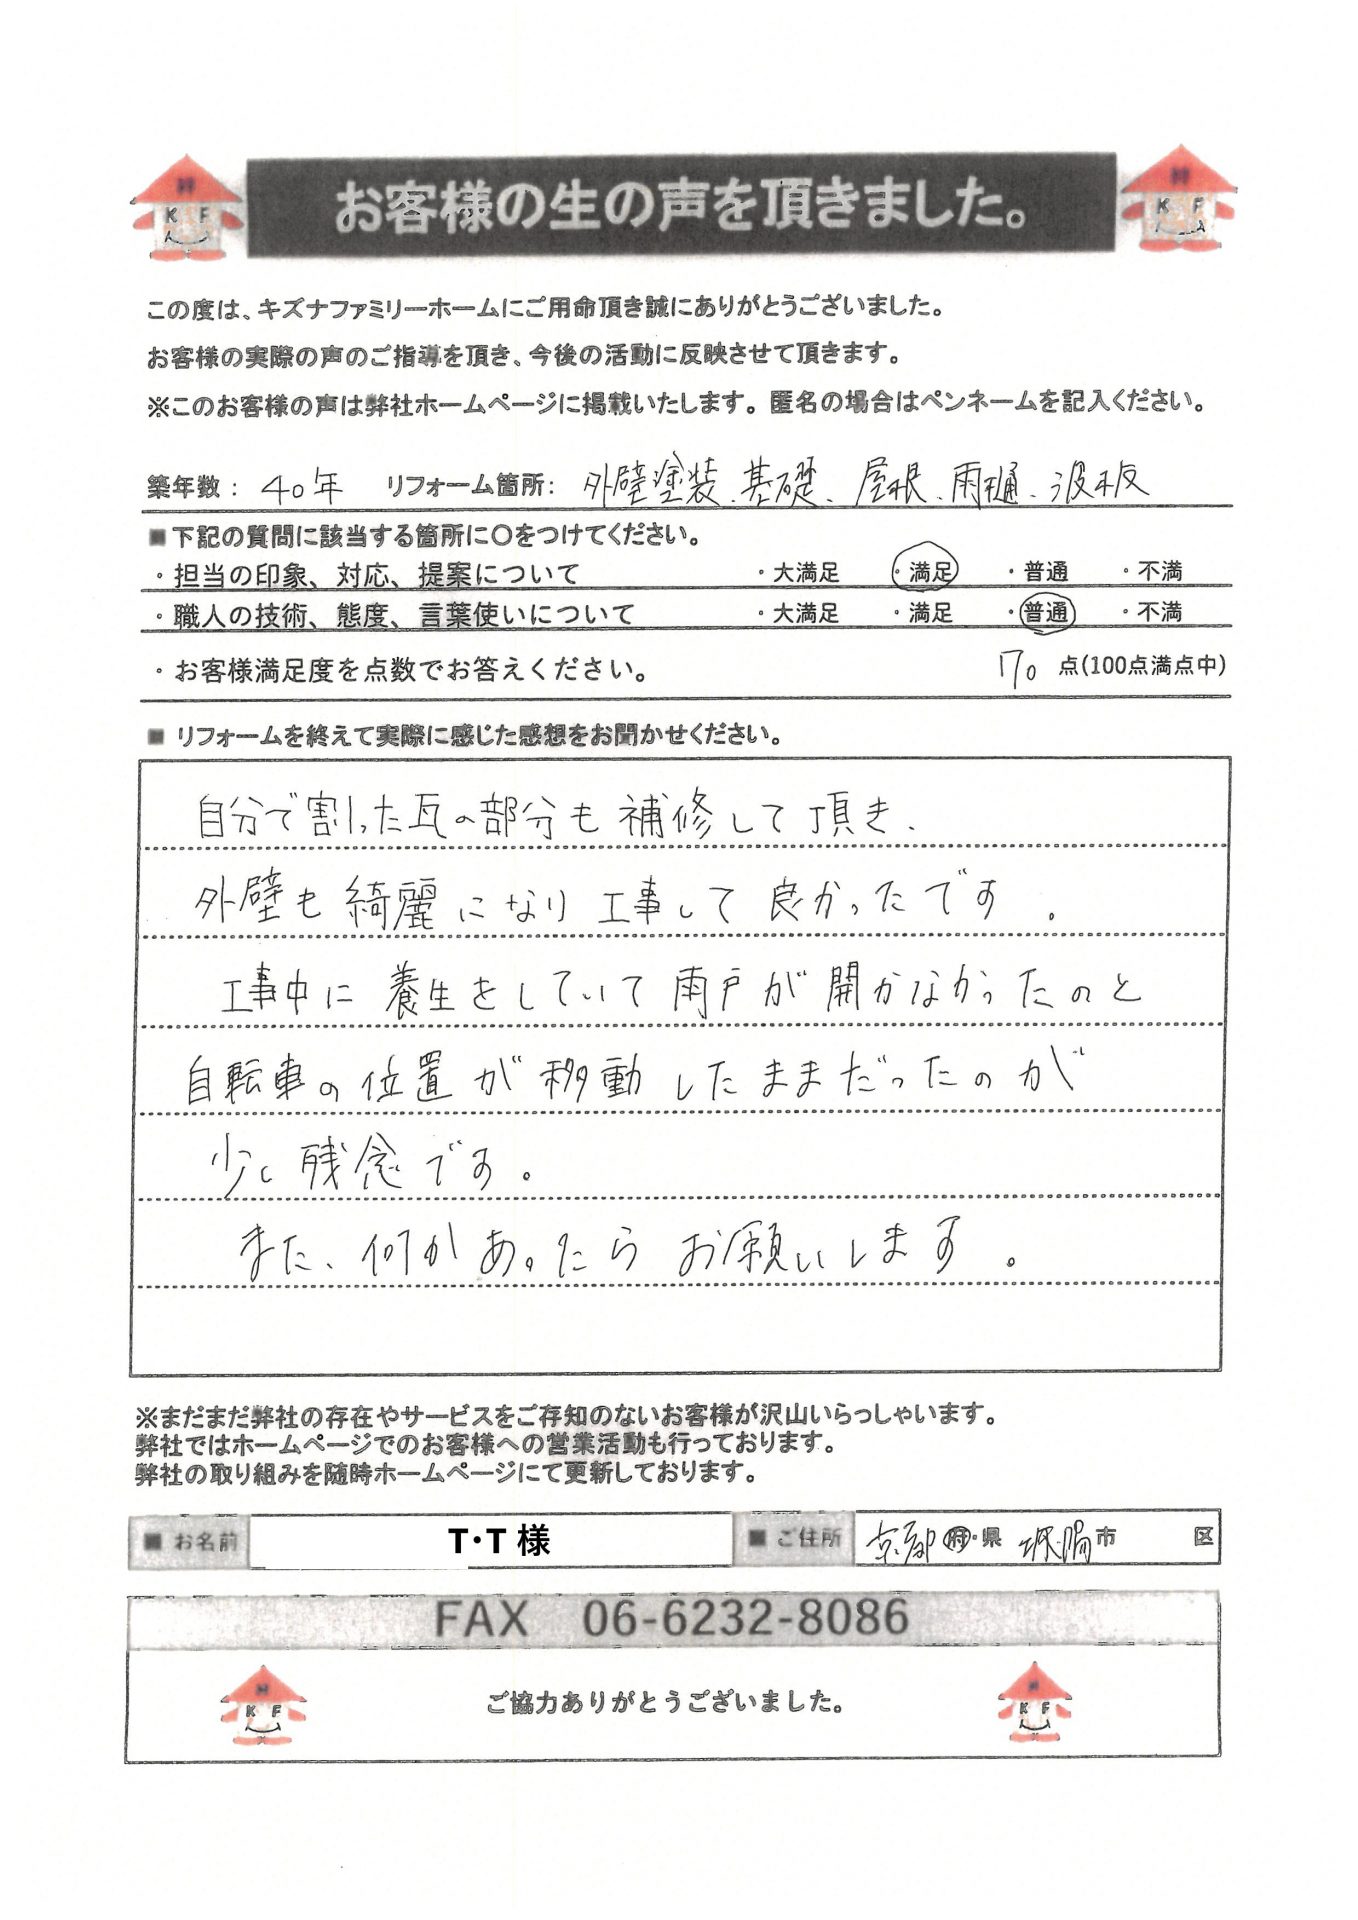 お客様の生の声を頂きました。
K F
K F
この度は、キズナファミリーホームにご用命頂き誠にありがとうございました。
お客様の実際の声のご指導を頂き、今後の活動に反映させて頂きます。
※このお客様の声は弊社ホームページに掲載いたします。匿名の場合はペンネームを記入ください。
築年数: 40年 リフォーム箇所: 外壁塗装、基礎、屋根、雨樋、波板
■下記の質問に該当する箇所に○をつけてください。
・担当の印象、対応、提案について ・大満足 ・満足 ・普通 ・不満
・職人の技術、態度、言葉使いについて ・大満足 ・満足 ・普通 ・不満
・お客様満足度を点数でお答えください。 70 点(100点満点中)
■ リフォームを終えて実際に感じた感想をお聞かせください。
自分で割った瓦の部分も補修して頂き、
外壁も綺麗になり工事して良かったです。
工事中に養生をしていて雨戸が開かなかったのと
自転車の位置が移動したままだったのが
少し残念です。
また、何かあったらお願いします。
※まだまだ弊社の存在やサービスをご存知のないお客様が沢山いらっしゃいます。
弊社ではホームページでのお客様への営業活動も行っております。
弊社の取り組みを随時ホームページにて更新しております。
■ お名前 T・T 様 ■ ご住所 京都 府・県 城陽市 区
FAX 06-6232-8086
K F
ご協力ありがとうございました。
K F